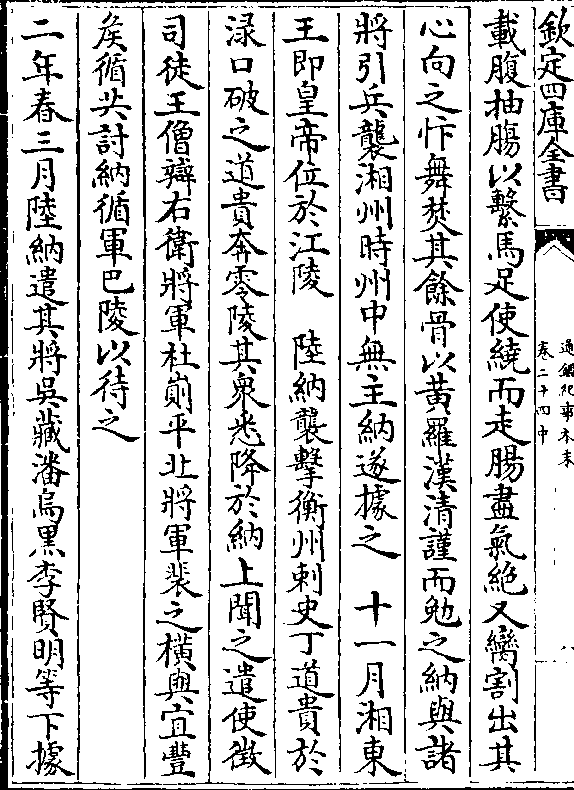 欽定四庫全書
通鑑紀事本末
卷二十四中
八
載腹抽腸以繫馬足使繞而走腸盡氣絶又臠割出其
心向之忭舞焚其餘骨以黃羅漢清謹而勉之納與諸
將引兵襲湘州時州中無主納遂據之　十一月湘東
王即皇帝位於江陵　陸納襲擊衡州刺史丁道貴於
渌口破之道貴奔零陵其衆悉降於納上聞之遣使徵
司徒王僧辯右衛將軍杜崱平北將軍裴之横與宜豐
矦循共討納循軍巴陵以待之
二年春三月陸納遣其將吳藏潘烏黑李賢明等下據